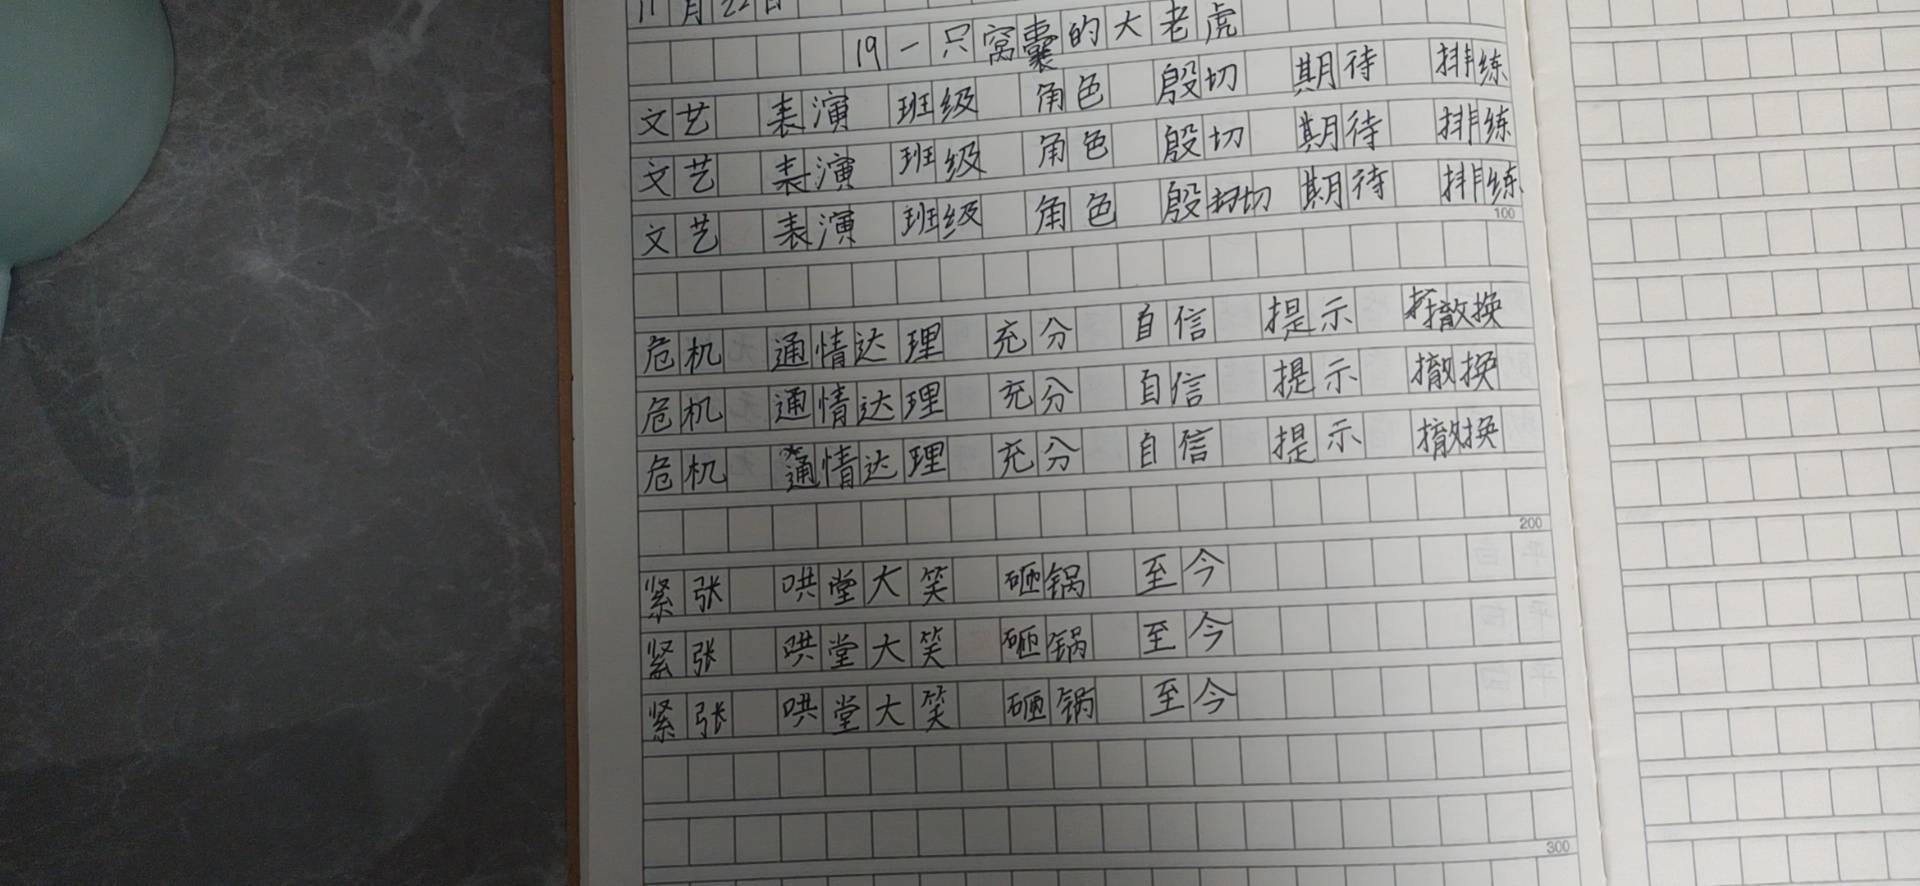 11月22日
19一只窝囊的大老虎
文艺 表演 班级 角色 殷切 期待 排练
文艺 表演 班级 角色 殷切 期待 排练
文艺 表演 班级 角色 殷切 期待 排练
100
危机 通情达理 充分 自信 提示 撤换
危机 通情达理 充分 自信 提示 撤换
危机 通情达理 充分 自信 提示 撤换
200
紧张 哄堂大笑 砸锅 至今
紧张 哄堂大笑 砸锅 至今
紧张 哄堂大笑 砸锅 至今
300